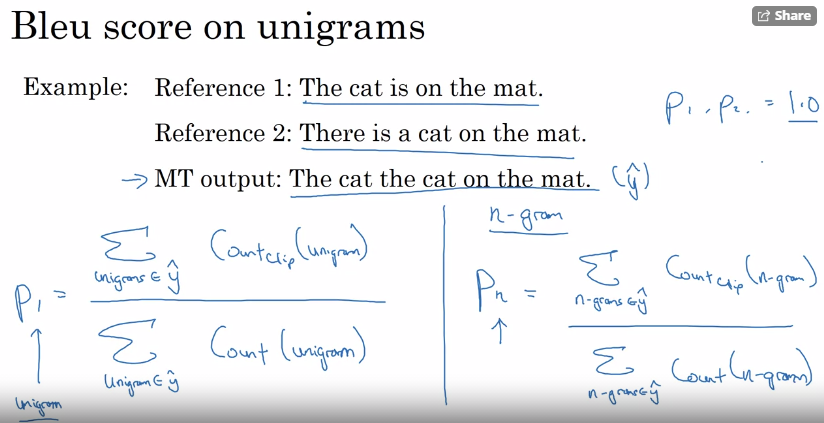 Share
Bleu score on unigrams
Example: Reference 1: The cat is on the mat.
P₁, P₂, = 1.0
Reference 2: There is a cat on the mat.
→ MT output: The cat the cat on the mat. (ŷ)
n-gram
P₁ = ∑ unigrams ∈ ŷ Count clip (unigram)
∑ unigram ∈ ŷ Count (unigram)
unigram
Pₙ = ∑ n-grams ∈ ŷ Count clip (n-gram)
∑ n-grams ∈ ŷ Count (n-gram)